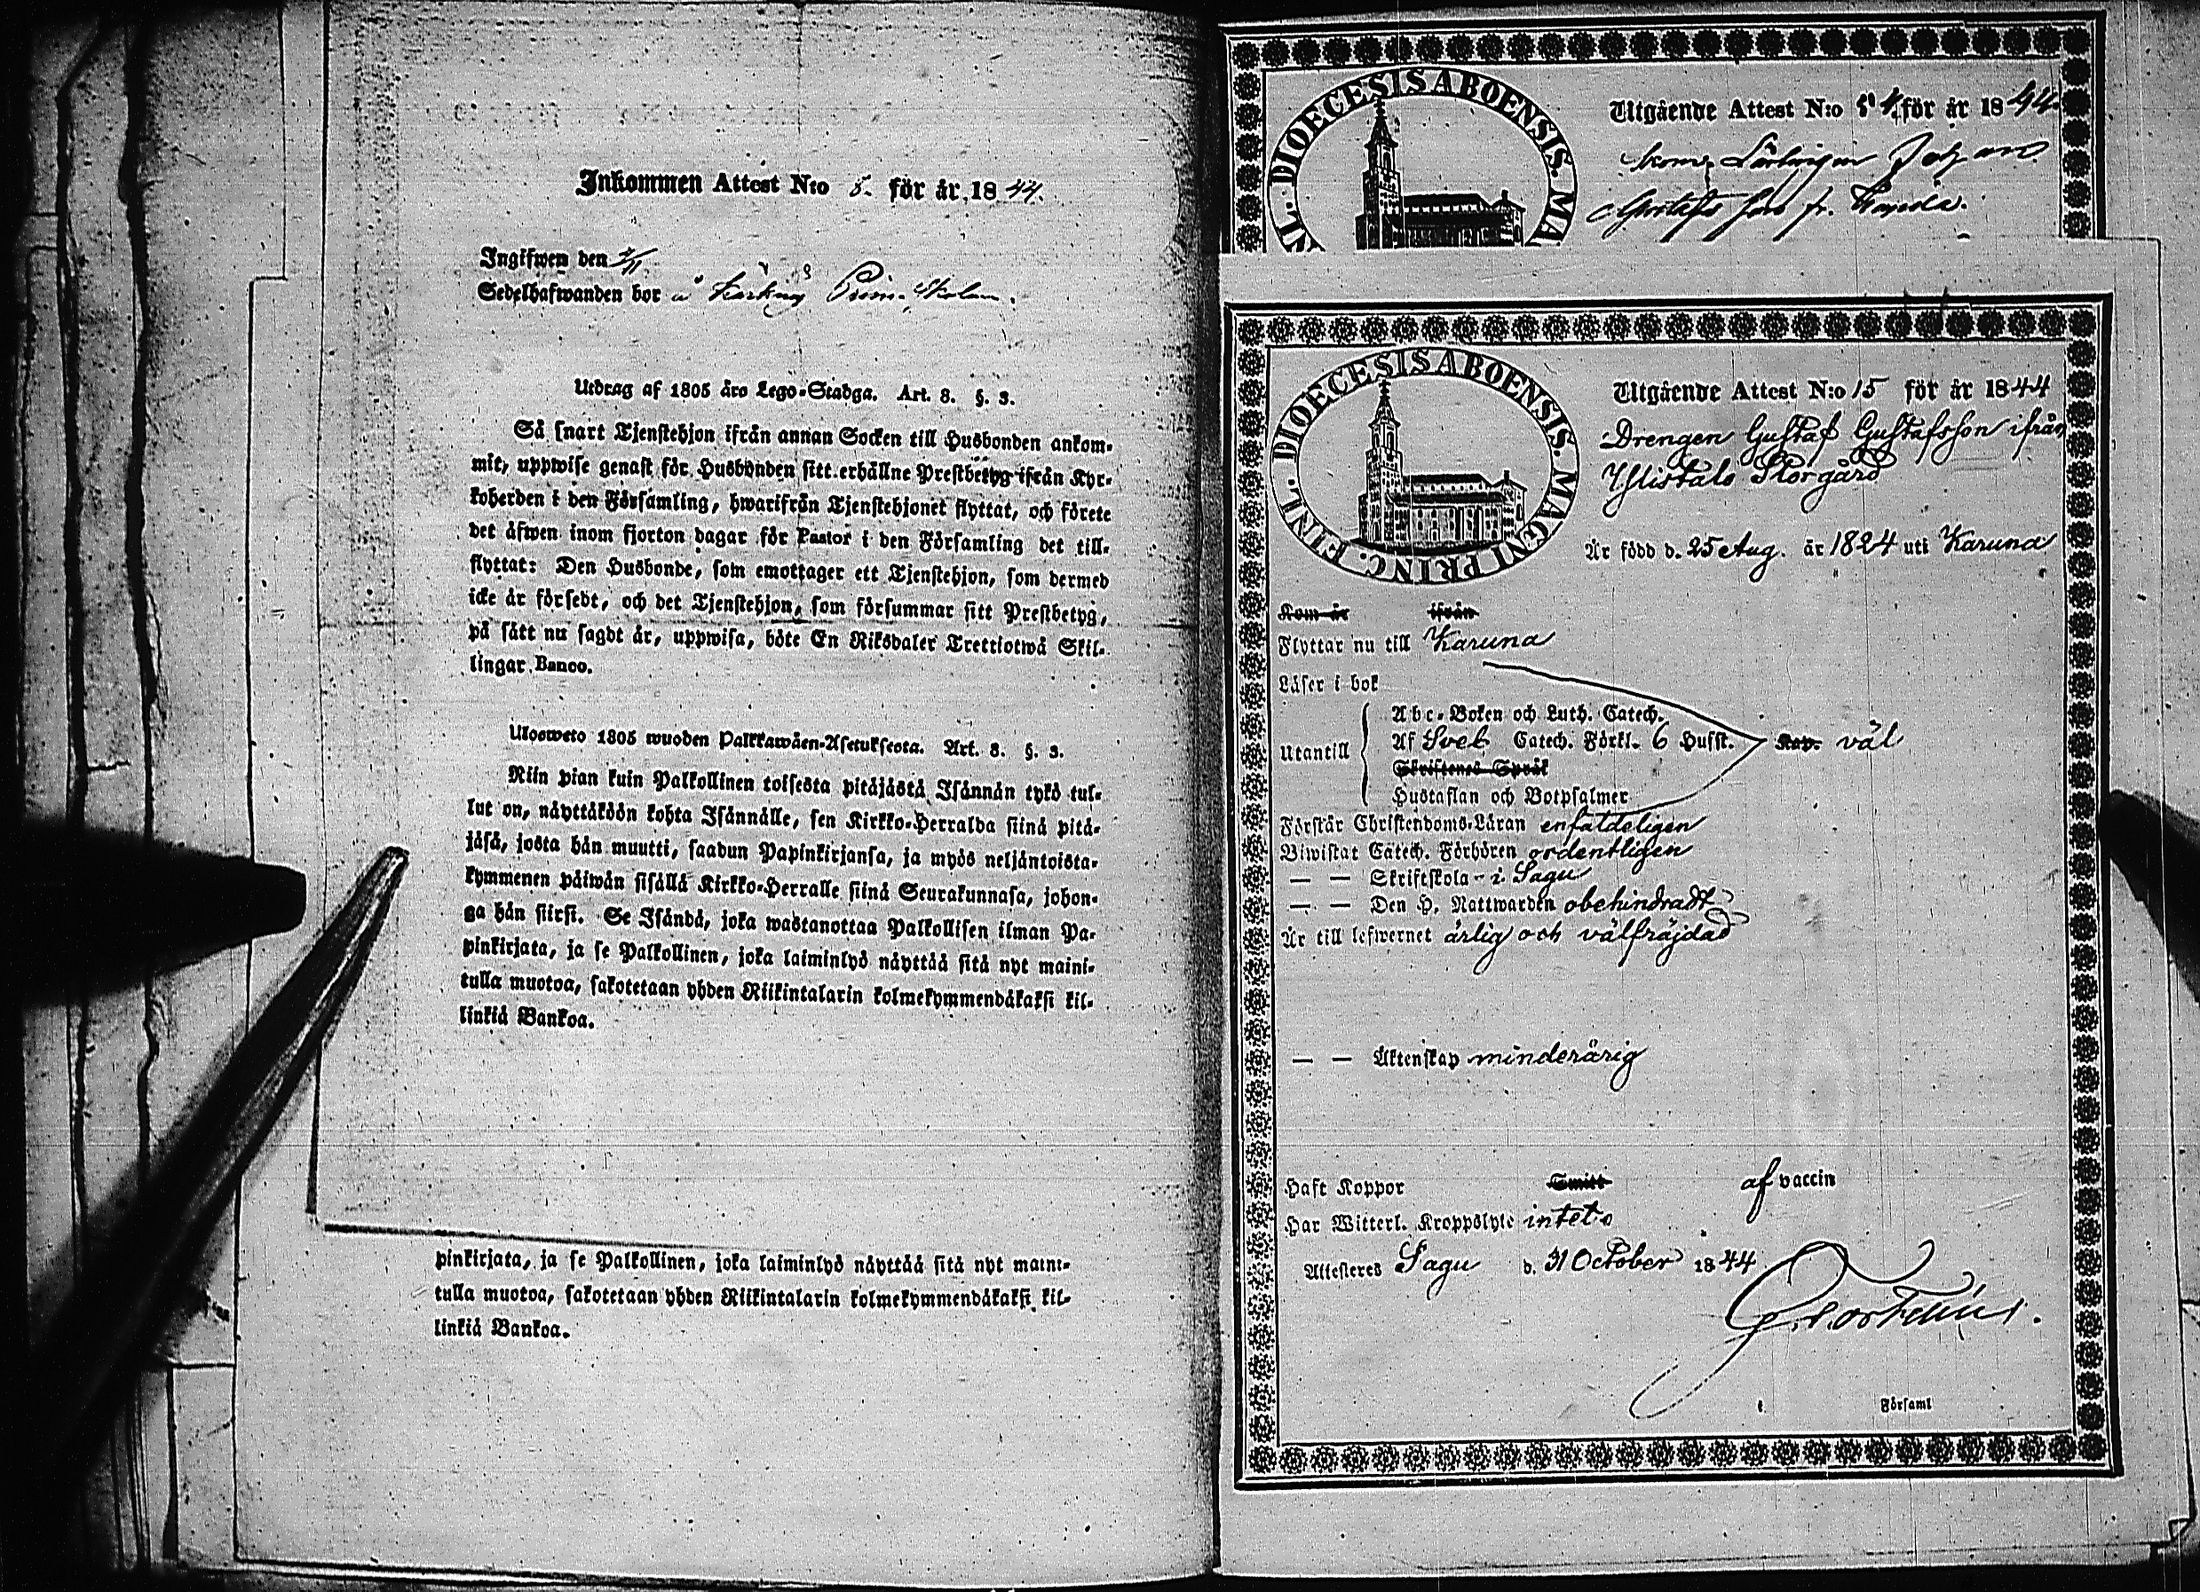 Inkommen Attest N:o 5. för år 1844.
Ingifwen den 2/11
Sedelhafwanden bor å
Utdrag af 1805 års Lego-Stadga. Art. 8. §. 3.
Så snart Tjenstehjon ifrån annan Socken till Husbonden ankom-
mit, uppwise genast för Husbonden sitt erhållne Prestbetyg ifrån Kyr-
koherden i den Församling, hwarifrån Tjenstehjonet flyttat, och förete
det äfwen inom fjorton dagar för Pastor i den Församling det till-
flyttat: Den Husbonde, som emottager ett Tjenstehjon, som dermed
icke är försedt, och det Tjenstehjon, som försummar sitt Prestbetyg,
på sätt nu sagdt är, uppwisa, böte En Riksdaler Trettiotwå Skil-
lingar Banco.
Ulosweto 1805 wuoden Palkkawäen-Asetuksesta. Art. 8. §. 3.
Niin pian kuin Palkollinen toisesta pitäjästä Isännän tykö tul-
lut on, näyttäköön kohta Isännälle, sen Kirkko-Herralda siinä pitä-
jäsä, josta hän muutti, saadun Papinkirjansa, ja myös neljäntoista-
kymmenen päiwän sisällä Kirkko-Herralle siinä Seurakunnasa, johon-
ga hän siirsi. Se Isändä, joka wastanottaa Palkollisen ilman Pa-
pinkirjata, ja se Palkollinen, joka laiminlyö näyttää sitä nyt maini-
tulla muotoa, sakotetaan yhden Riikintalarin kolmekymmendäkaksi kil-
linkiä Bankoa.
pinkirjata, ja se Palkollinen, joka laiminlyö näyttää sitä nyt maini-
tulla muotoa, sakotetaan yhden Riikintalarin kolmekymmendäkaksi kil-
linkiä Bankoa.
DIOECESIS ABOENSIS. MA
NL.
Utgående Attest N:o för år 1844
Gustafs son fr.
DIOECESIS ABOENSIS. MAGNI PRINC. FINL.
Utgående Attest N:o 15 för år 1844
Drengen Gustaf Gustafsson ifrån
Storgård
Är född d. 25 Aug. år 1824 uti Karuna
Kom år ifrån
Flyttar nu till Karuna
Läser i bok
Utantill
Abc-Boken och Luth. Catech.
Af Sveb Catech. Förkl. 6 Hufst. Kap. väl
Skriftenes Språk
Hustaflan och Botpsalmer
Förstår Christendoms-Läran enfaldeligen
Biwistat Catech. Förhören ordentligen
— — Skriftskola i Sagu
— — Den H. Nattwarden obehindradt
Är till lefwernet ärlig och välfräjdad
— — Äktenskap minderårig
Haft Koppor Smitt af vaccin
Har Witterl. Kroppslyte intet
Attesteres Sagu d. 31 October 1844
Församl